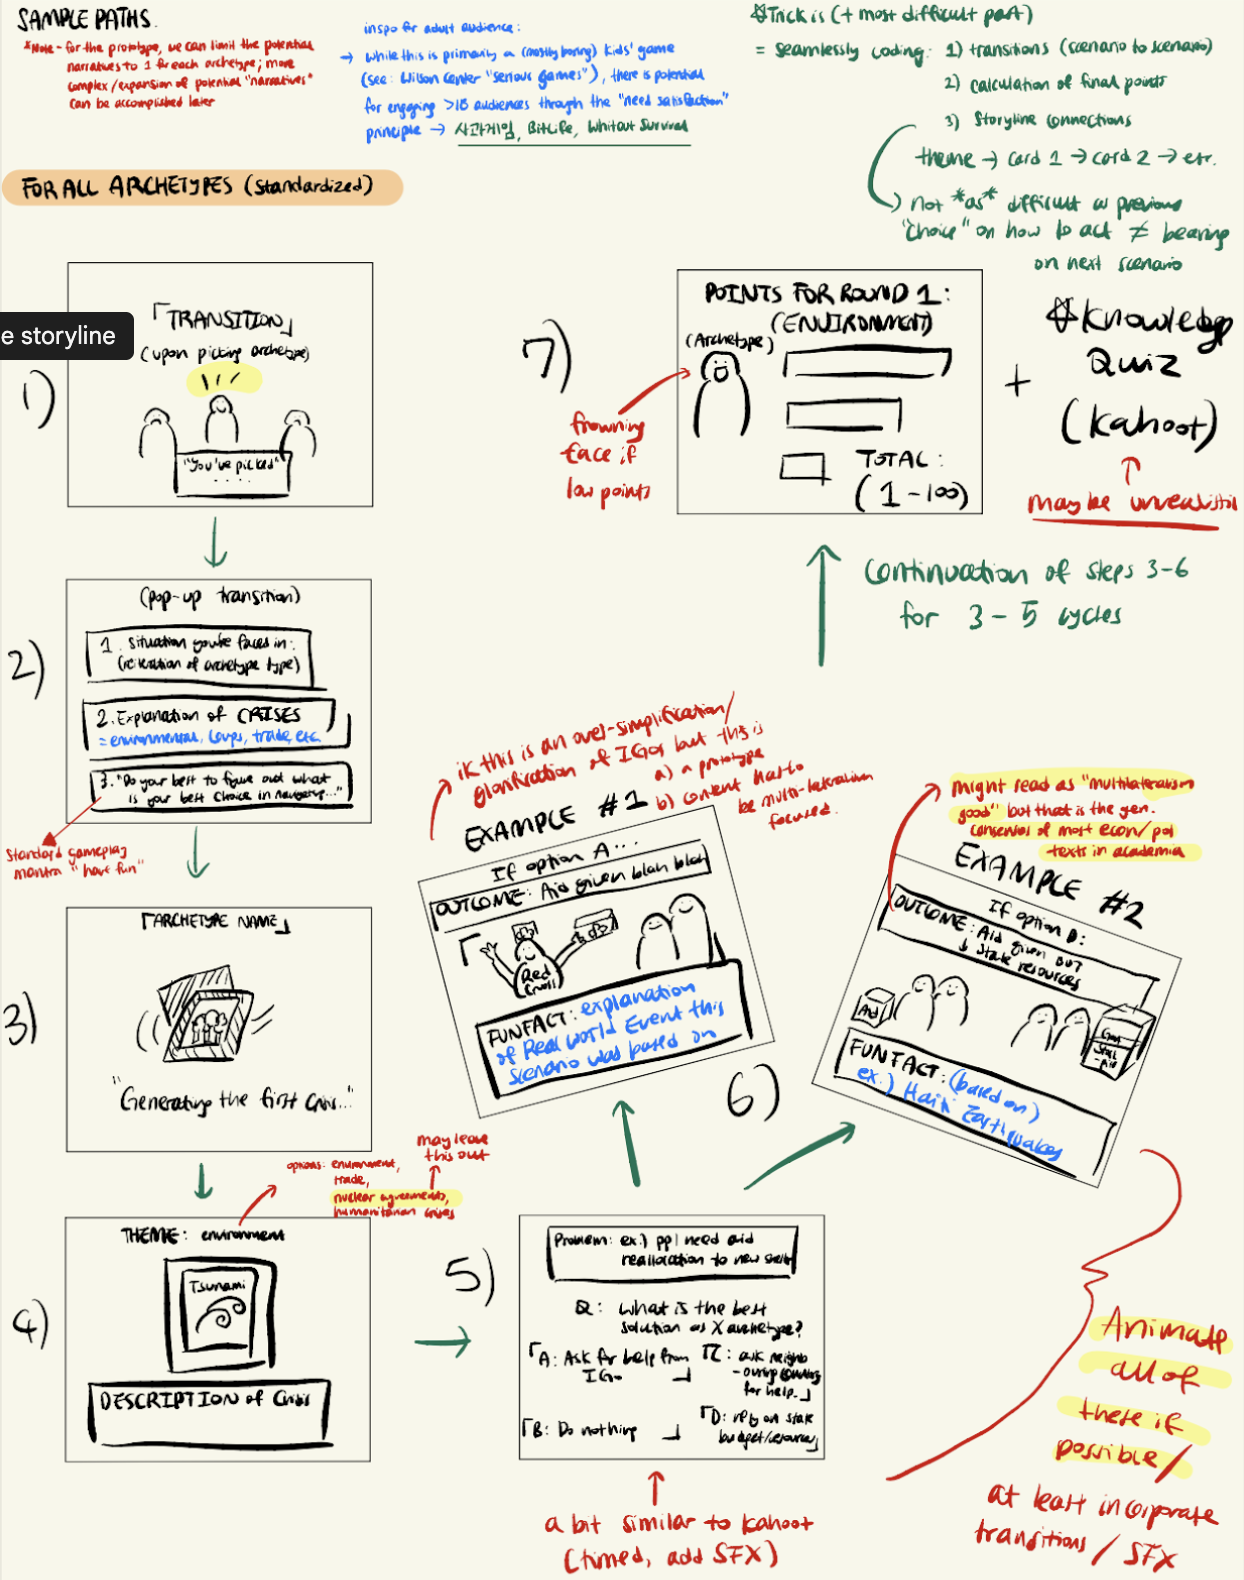 SAMPLE PATHS.
*Note - for the prototype, we can limit the potential
narratives to 1 for each archetype; more
complex/expansion of potential "narratives"
can be accomplished later
inspo for adult audience:
→ while this is primarily a (mostly boring) kids' game
(see: Wilson Center "serious games"), there is potential
for engaging >18 audiences through the "need satisfaction"
principle → 사과게임, BitLife, Whiteout Survival
☆Trick is (+ most difficult part)
= seamlessly coding: 1) transitions (scenario to scenario)
2) calculation of final points
3) Storyline connections
theme → card 1 → card 2 → etc.
not *as* difficult as previous
"choice" on how to act ≠ bearing
on next scenario
FOR ALL ARCHETYPES (standardized)
e storyline
1)
「TRANSITION」
(upon picking archetype)
"You've picked"
....
2)
(pop-up transition)
1. Situation you're faced in:
(reiteration of archetype type)
2. Explanation of CRISES
= environmental, coups, trade, etc.
3. "Do your best to figure out what
is your best choice in navigating..."
standard gameplay
mantra "have fun"
3)
「ARCHETYPE NAME」
"Generating the first crisis..."
4)
THEME: environment
Tsunami
DESCRIPTION of Crisis
options: environment,
trade,
nuclear agreements,
humanitarian crises
may leave
this out
5)
Problem: ex.) ppl need aid
reallocation to new
Q: What is the best
solution as X archetype?
「A: Ask for help from
IGO 」
「C: ask neighb
-ouring country
for help.」
「B: Do nothing 」
「D: rely on state
budget/resources」
a bit similar to kahoot
(timed, add SFX)
6)
ik this is an over-simplification/
glorification of IGOs but this is
a) a prototype
b) content has to
be multi-lateralism
focused.
EXAMPLE #1
If option A...
OUTCOME: Aid given blah blah
Red
Cross
FUNFACT: explanation
of Real World Event this
scenario was based on
might read as "multilateralism
good" but that is the gen.
consensus of most econ/pol
texts in academia
EXAMPLE #2
If option D:
OUTCOME: Aid given BUT
↓ state resources
Aid
FUNFACT: (based on)
ex.) Haiti Earthquakes
Animate
all of
these if
possible/
at least incorporate
transitions / SFX
7)
POINTS FOR ROUND 1:
(ENVIRONMENT)
(Archetype)
TOTAL:
(1-100)
frowning
face if
low points
+
☆Knowledge
Quiz
(kahoot)
maybe unrealistic
continuation of steps 3-6
for 3-5 cycles